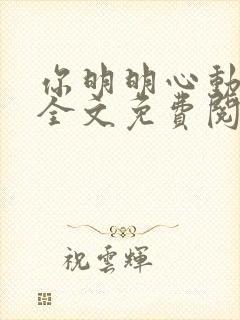 你明明心動
全文免費閱
祝雲輝